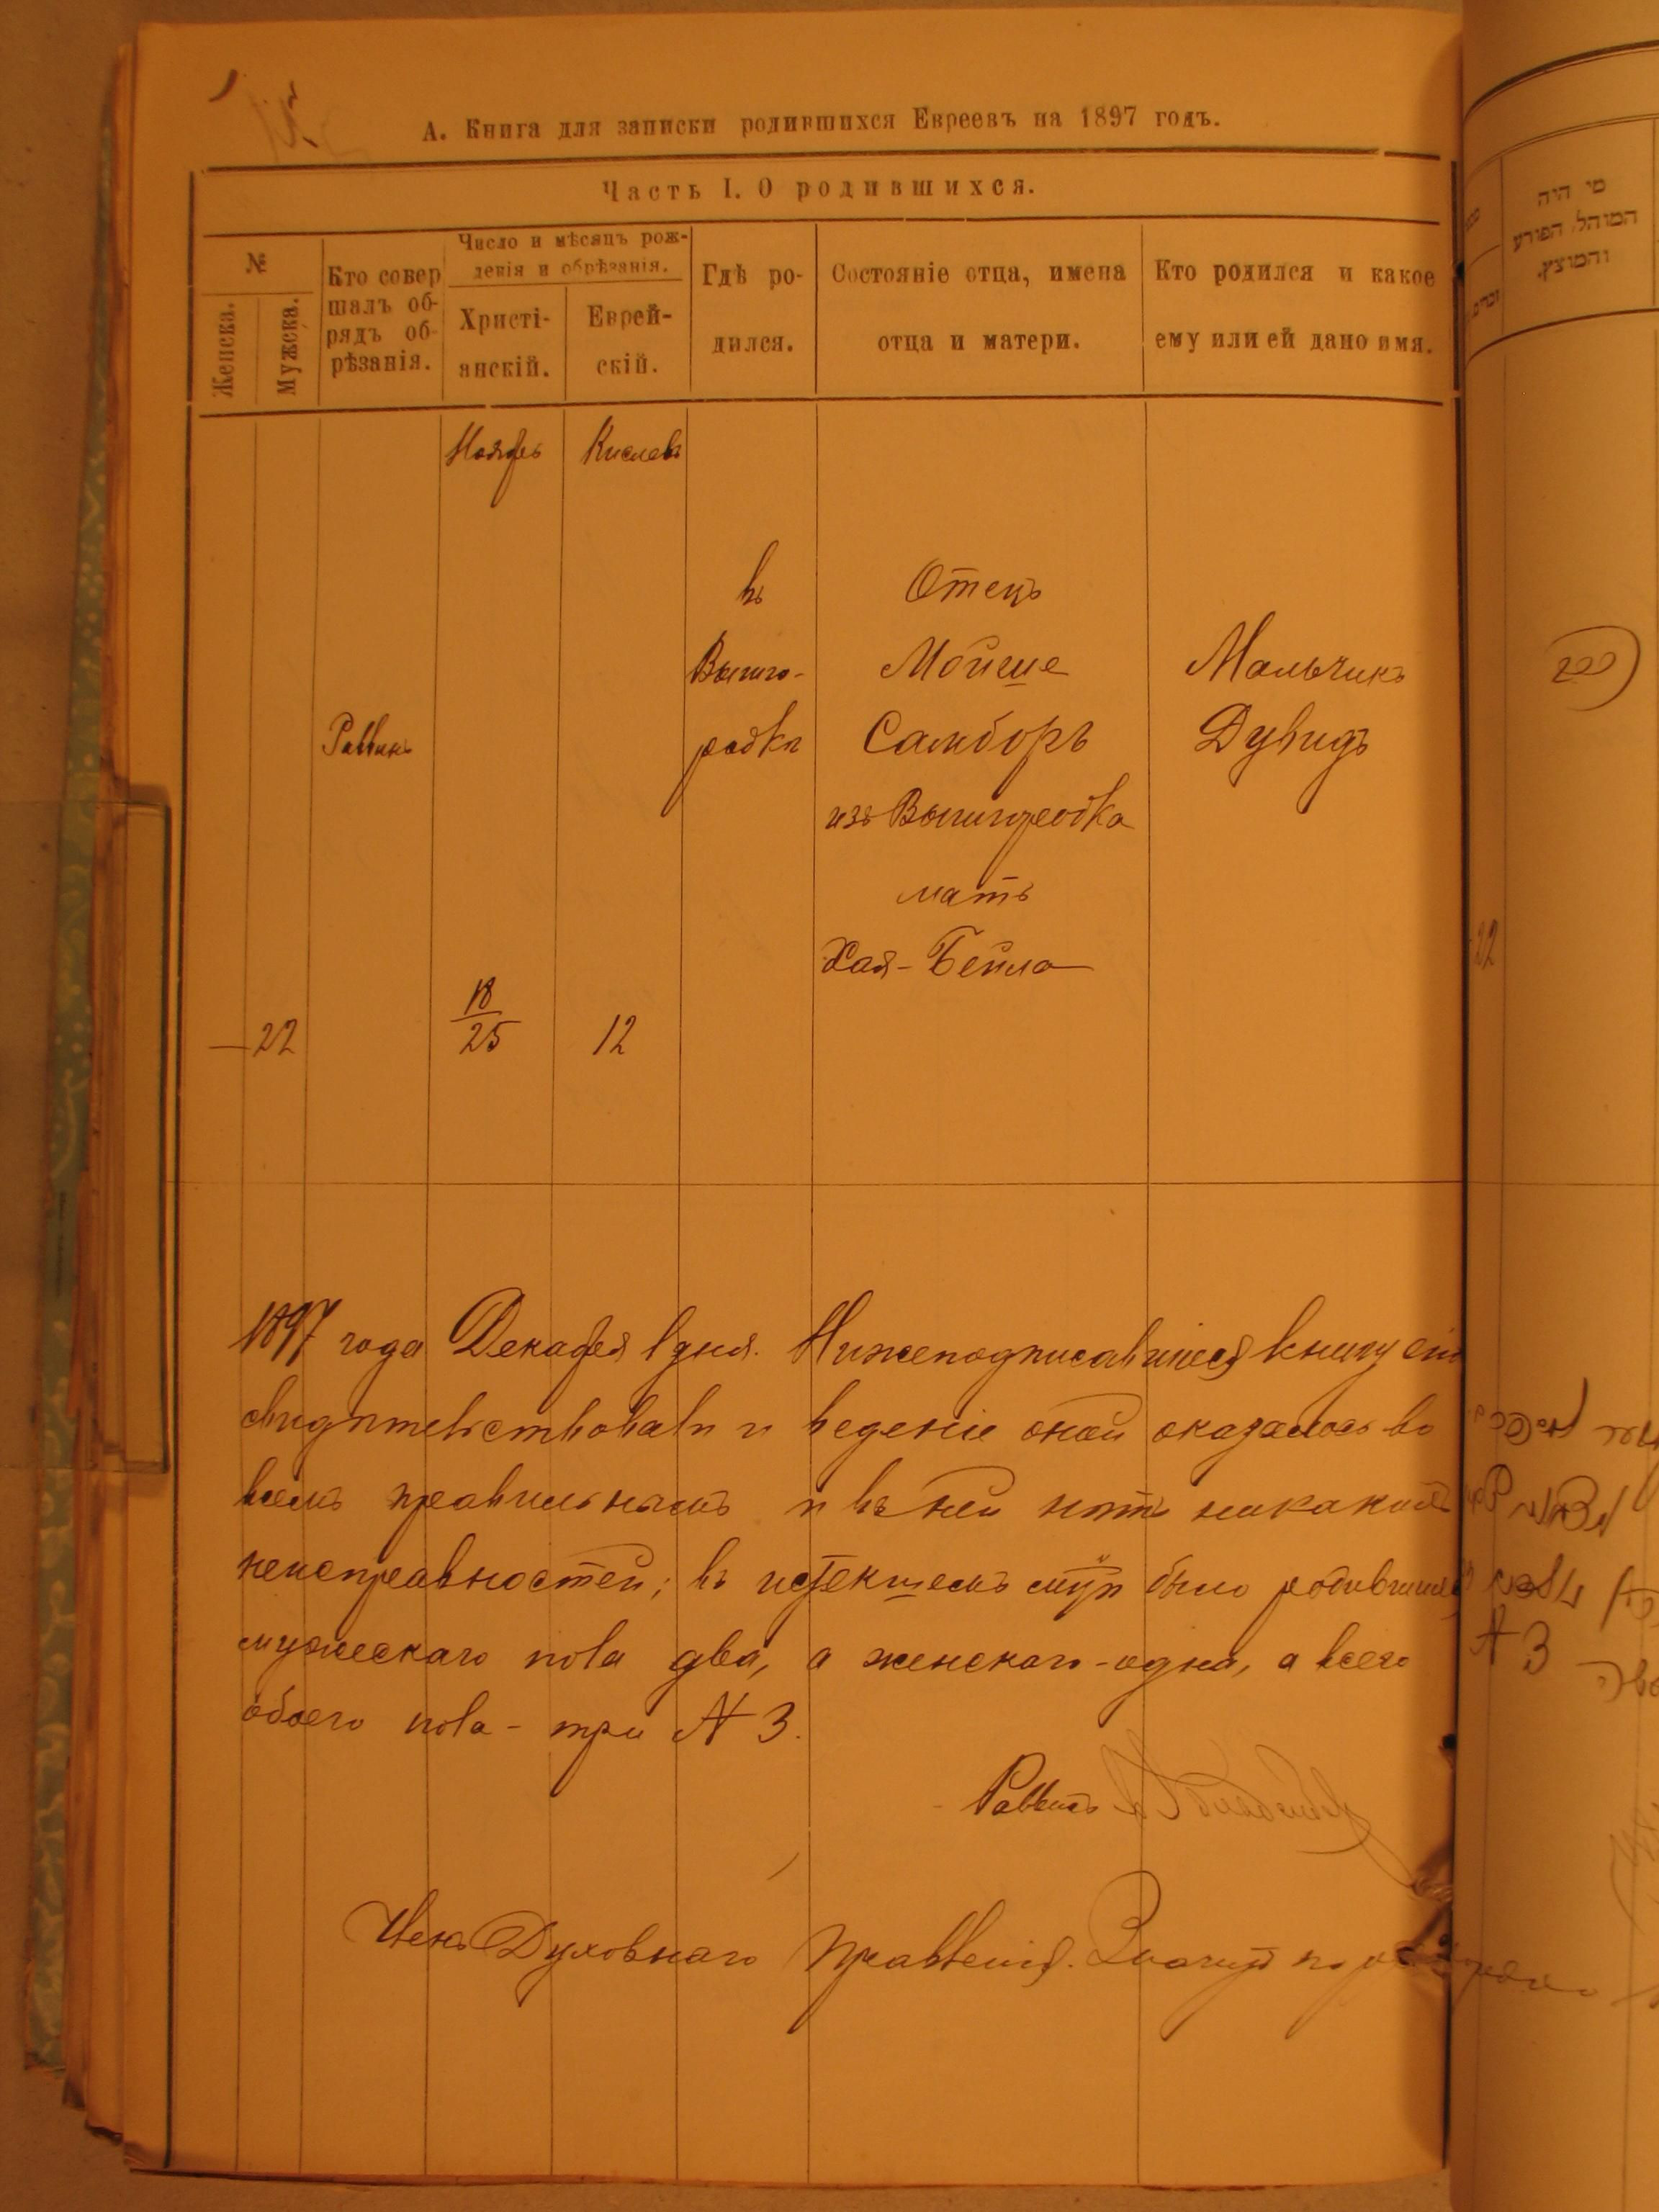 А. Книга для записки родившихся Евреевъ на 1897 годъ.
Часть I. О родившихся.
№
Женска.
Мужска.
Кто совер
шалъ об-
рядъ об-
рѣзанія.
Число и мѣсяцъ рож-
денія и обрѣзанія.
Христі-
анскій.
Еврей-
скій.
Гдѣ ро-
дился.
Состояніе отца, имена
отца и матери.
Кто родился и какое
ему или ей дано имя.
Ноябрь
Кислевъ
—22
Раввинъ
18
25
12
въ
Вышго-
родкѣ
Отецъ
Мойше
Самборъ
изъ Вышгородка
мать
Хая-Бейла
Мальчикъ
Дувидъ
1897 года Декабря 1 дня. Нижеподписавшіеся книгу сію
свидѣтельствовали и веденіе оной оказалось во
всемъ правильнымъ и въ ней нѣтъ никакихъ
неисправностей; въ истекшемъ было родившихся
мужескаго пола два, а женскаго-одна, а всего
обоего пола - три № 3.
Раввинъ
Членъ Духовнаго Правленія.
מי היה
המוהל הפורע
והמוצץ.
זכרים
22
№ 3